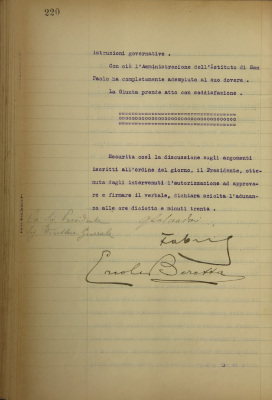 220
istruzioni governative .
Con ciò l'Amministrazione dell'Istituto di San
Paolo ha completamente adempiuto al suo dovere .
La Giunta prende atto con soddisfazione .
Esaurita così la discussione sugli argomenti
iscritti all'ordine del giorno, il Presidente, otte-
nuta dagli intervenuti l'autorizzazione ad approva-
re e firmare il verbale, dichiara sciolta l'adunan-
za alle ore diciotto e minuti trenta .
Il Presidente
Il Direttore Generale
Ercole Boretta